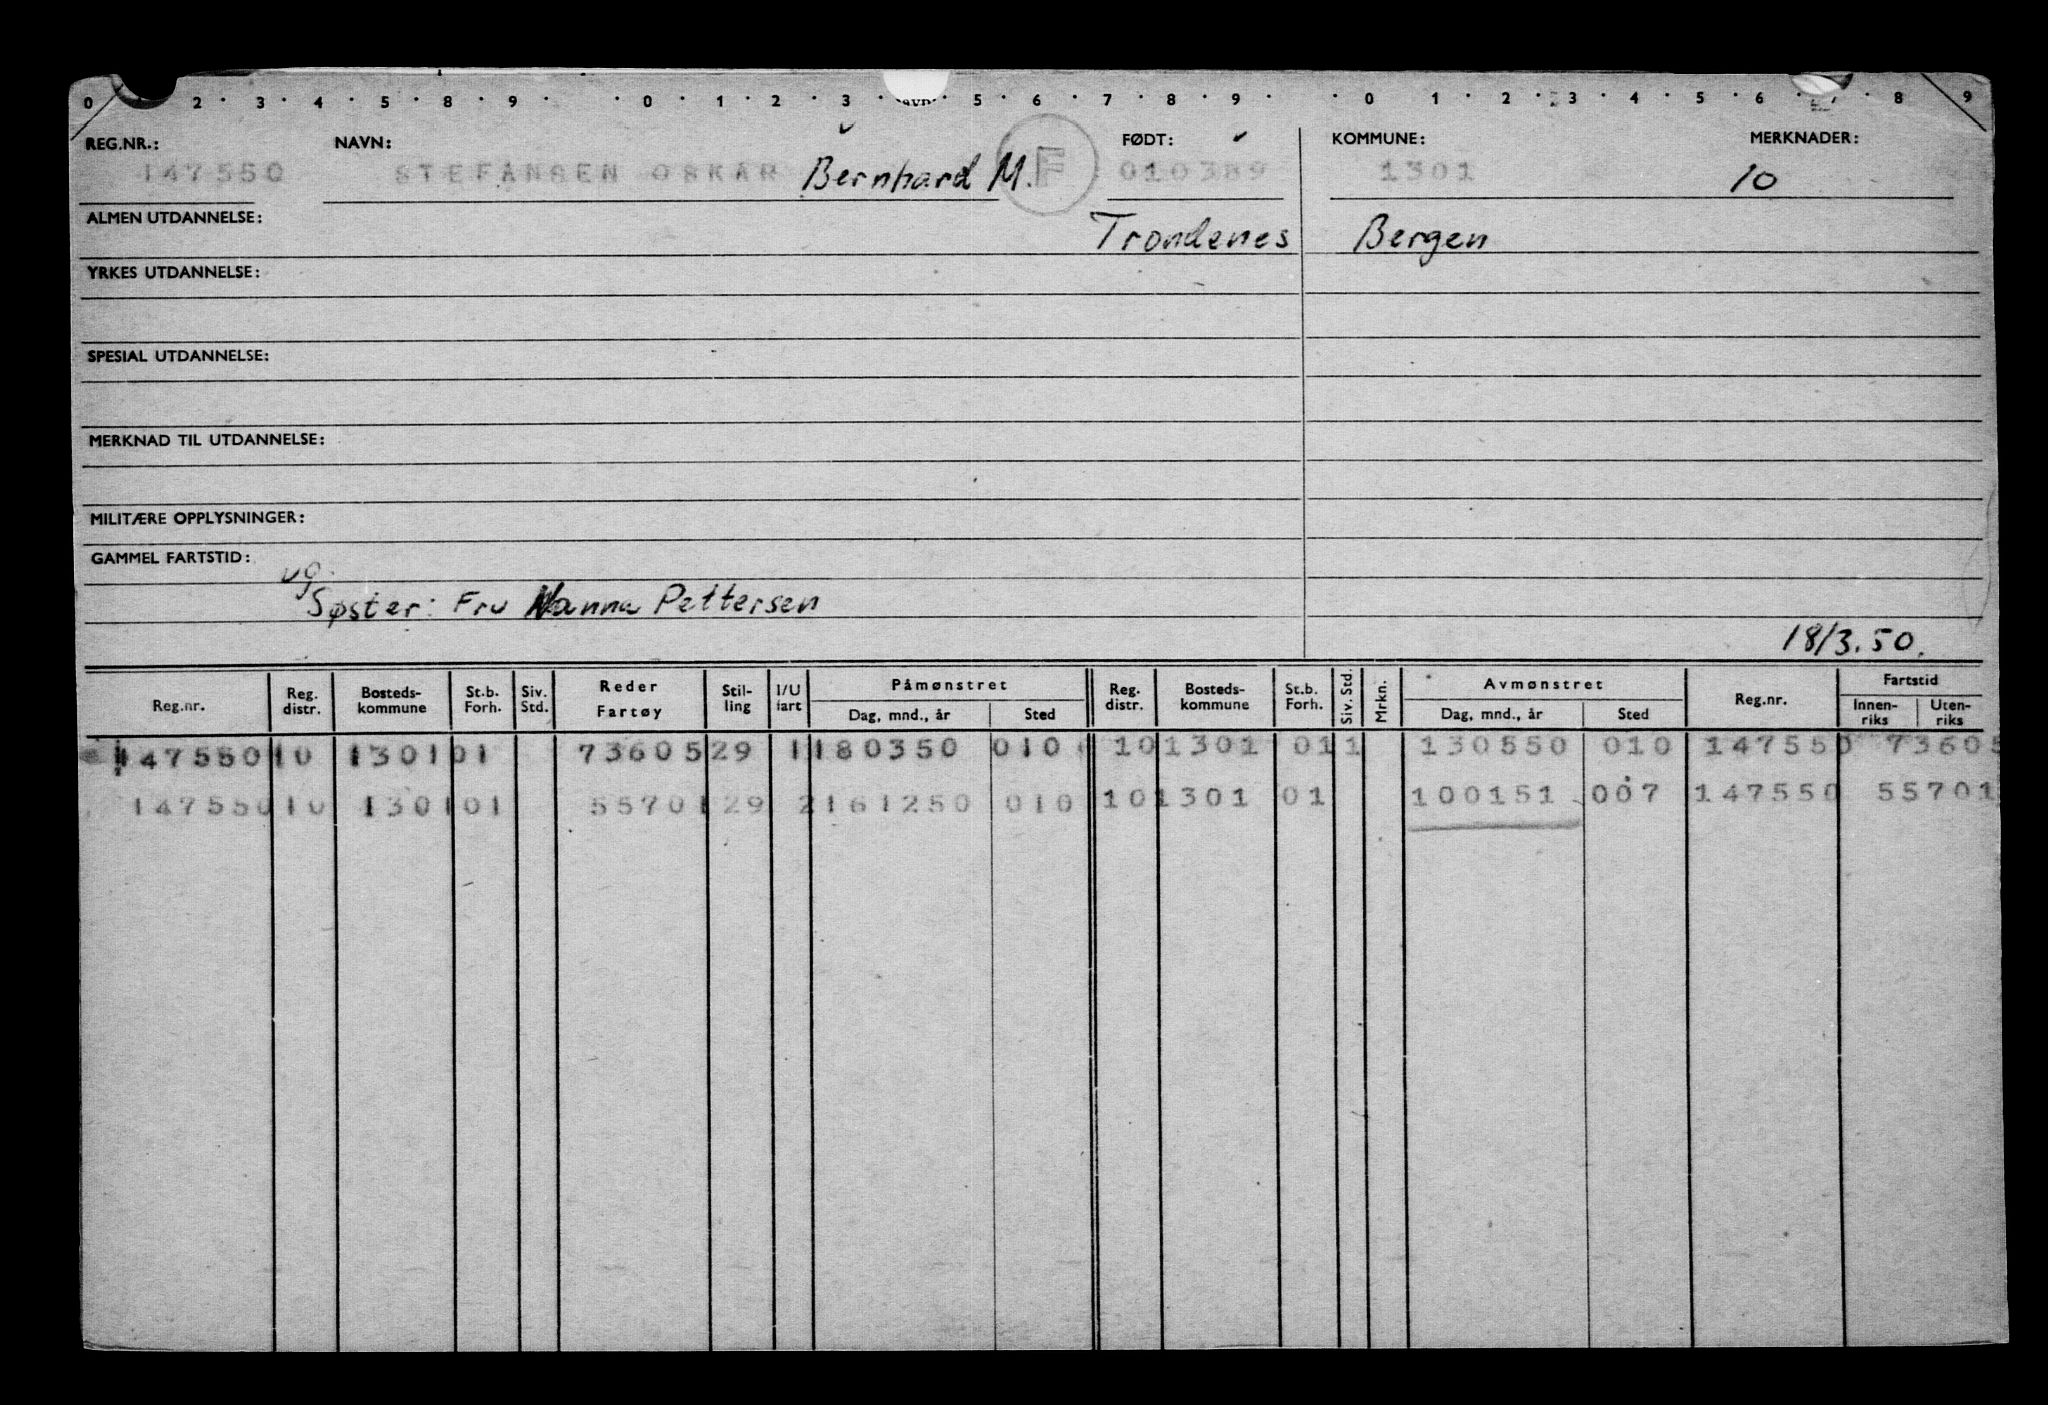 0 2 · 3 · 4 · 5 · 8 · 9 · · 0 · 1 · 2 · 3 · 5 · 6 · 7 · 8 · 9 · · 0 · 1 · 2 · 3 · 4 · 5 · 6 · 7 · 8 · 9
REG.NR.: NAVN: FØDT: KOMMUNE: MERKNADER:
147550 STEFANSEN OSKAR Bernhard M. F 010389 1301 10
ALMEN UTDANNELSE: Trondenes Bergen
YRKES UTDANNELSE:
SPESIAL UTDANNELSE:
MERKNAD TIL UTDANNELSE:
MILITÆRE OPPLYSNINGER:
GAMMEL FARTSTID:
ug.
Søster: Fru Nanna Pettersen
18/3.50.
Reg.nr. Reg. distr. Bosteds-kommune St.b. Forh. Siv. Std. Reder Fartøy Stil-ling I/U fart Påmønstret Dag, mnd., år Sted Reg. distr. Bosteds-kommune St.b. Forh. Siv. Std. Mrkn. Avmønstret Dag, mnd., år Sted Reg.nr. Fartstid Innen-riks Uten-riks
147550 10 1301 01 73605 29 1 180350 010 10 1301 01 1 130550 010 147550 73605
147550 10 1301 01 55701 29 2 161250 010 10 1301 01 100151 007 147550 55701